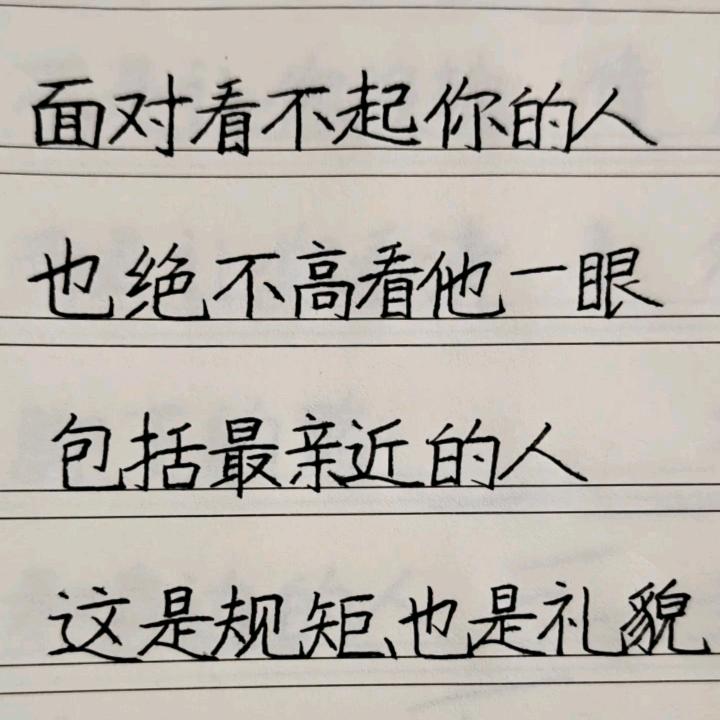 面对看不起你的人
也绝不高看他一眼
包括最亲近的人
这是规矩、也是礼貌